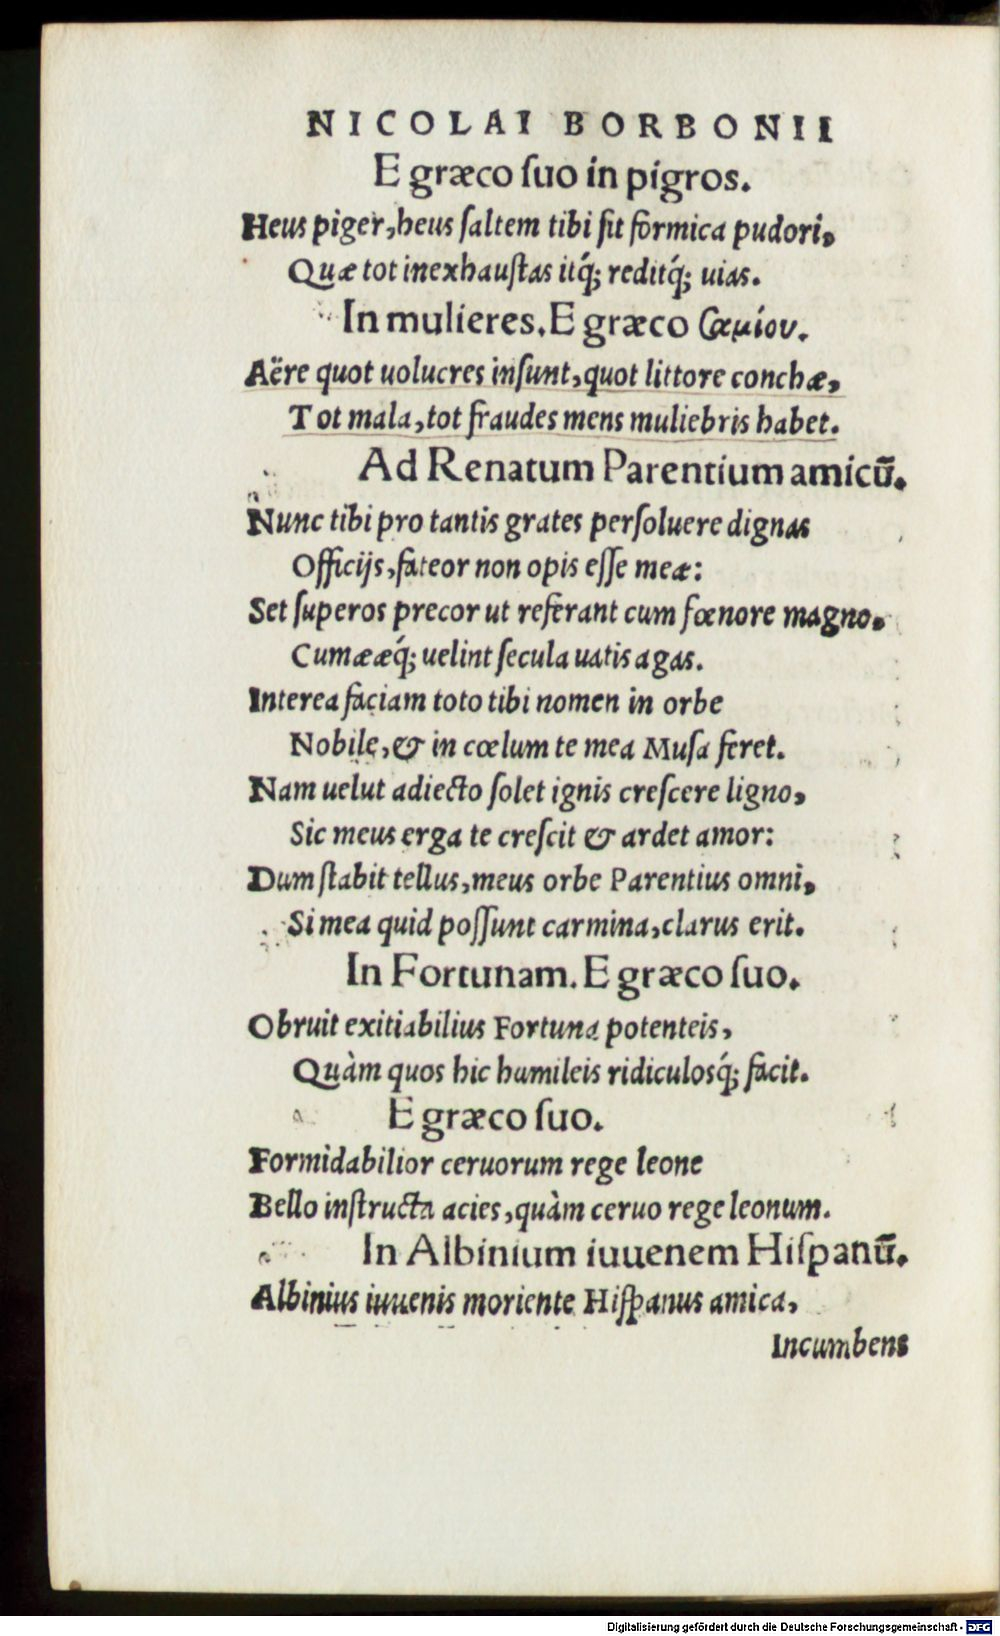 NICOLAI BORBONII
E græco ſuo in pigros.
Heus piger, heus ſaltem tibi ſit formica pudori,
Quæ tot inexhauſtas itq́; reditq́; uias.
In mulieres. E græco
Aëre quot uolucres inſunt, quot littore conchæ,
Tot mala, tot fraudes mens muliebris habet.
Ad Renatum Parentium amicū.
Nunc tibi pro tantis grates perſoluere dignas
Officijs, fateor non opis eſſe meæ:
Set ſuperos precor ut referant cum fœnore magno,
Cumææq́; uelint ſecula uatis agas.
Interea faciam toto tibi nomen in orbe
Nobile, & in cœlum te mea Muſa feret.
Nam uelut adiecto ſolet ignis creſcere ligno,
Sic meus erga te creſcit & ardet amor:
Dum ſtabit tellus, meus orbe Parentius omni,
Si mea quid poſſunt carmina, clarus erit.
In Fortunam. E græco ſuo.
Obruit exitiabilius Fortuna potenteis,
Quàm quos hic humileis ridiculosq́; facit.
E græco ſuo.
Formidabilior ceruorum rege leone
Bello inſtructa acies, quàm ceruo rege leonum.
In Albinium iuuenem Hiſpanū.
Albinius iuuenis moriente Hiſpanus amica,
Incumbens
Digitalisierung gefördert durch die Deutsche Forschungsgemeinschaft - DFG